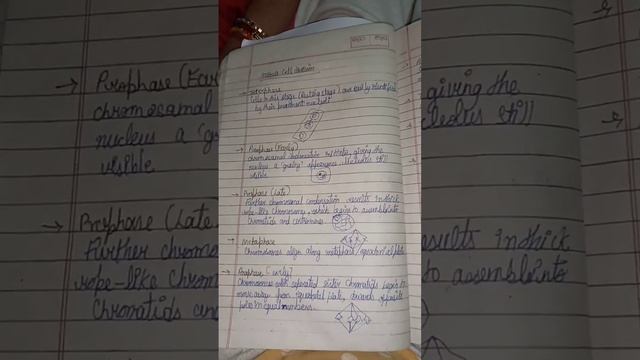 Mitosis Cell division
→ Interphase
Cells in this stage (Resting stage) are easily identified
by their prominent nuclei
→ Prophase (Early)
chromosomal condensation initiates, giving the
nucleus a 'grainy' appearance. Nucleolus still
visible
→ Prophase (Late)
Further chromosomal condensation results in thick
rope-like chromosomes, which begin to assemble into
Chromatids and centromeres
→ Metaphase
Chromosomes align along metaphase / equatorial plate
→ Anaphase (early)
Chromosomes with separated sister chromatids begin to
move away from equatorial plate, towards opposite
poles in equal numbers.
→ Prophase (Ear
chromosomal
nucleus a 'g
visible
→ Prophase (Late
Further chromo
rope-like chrom
Chromatids and
giving the
cleolus still
esults in thick
to assemble into